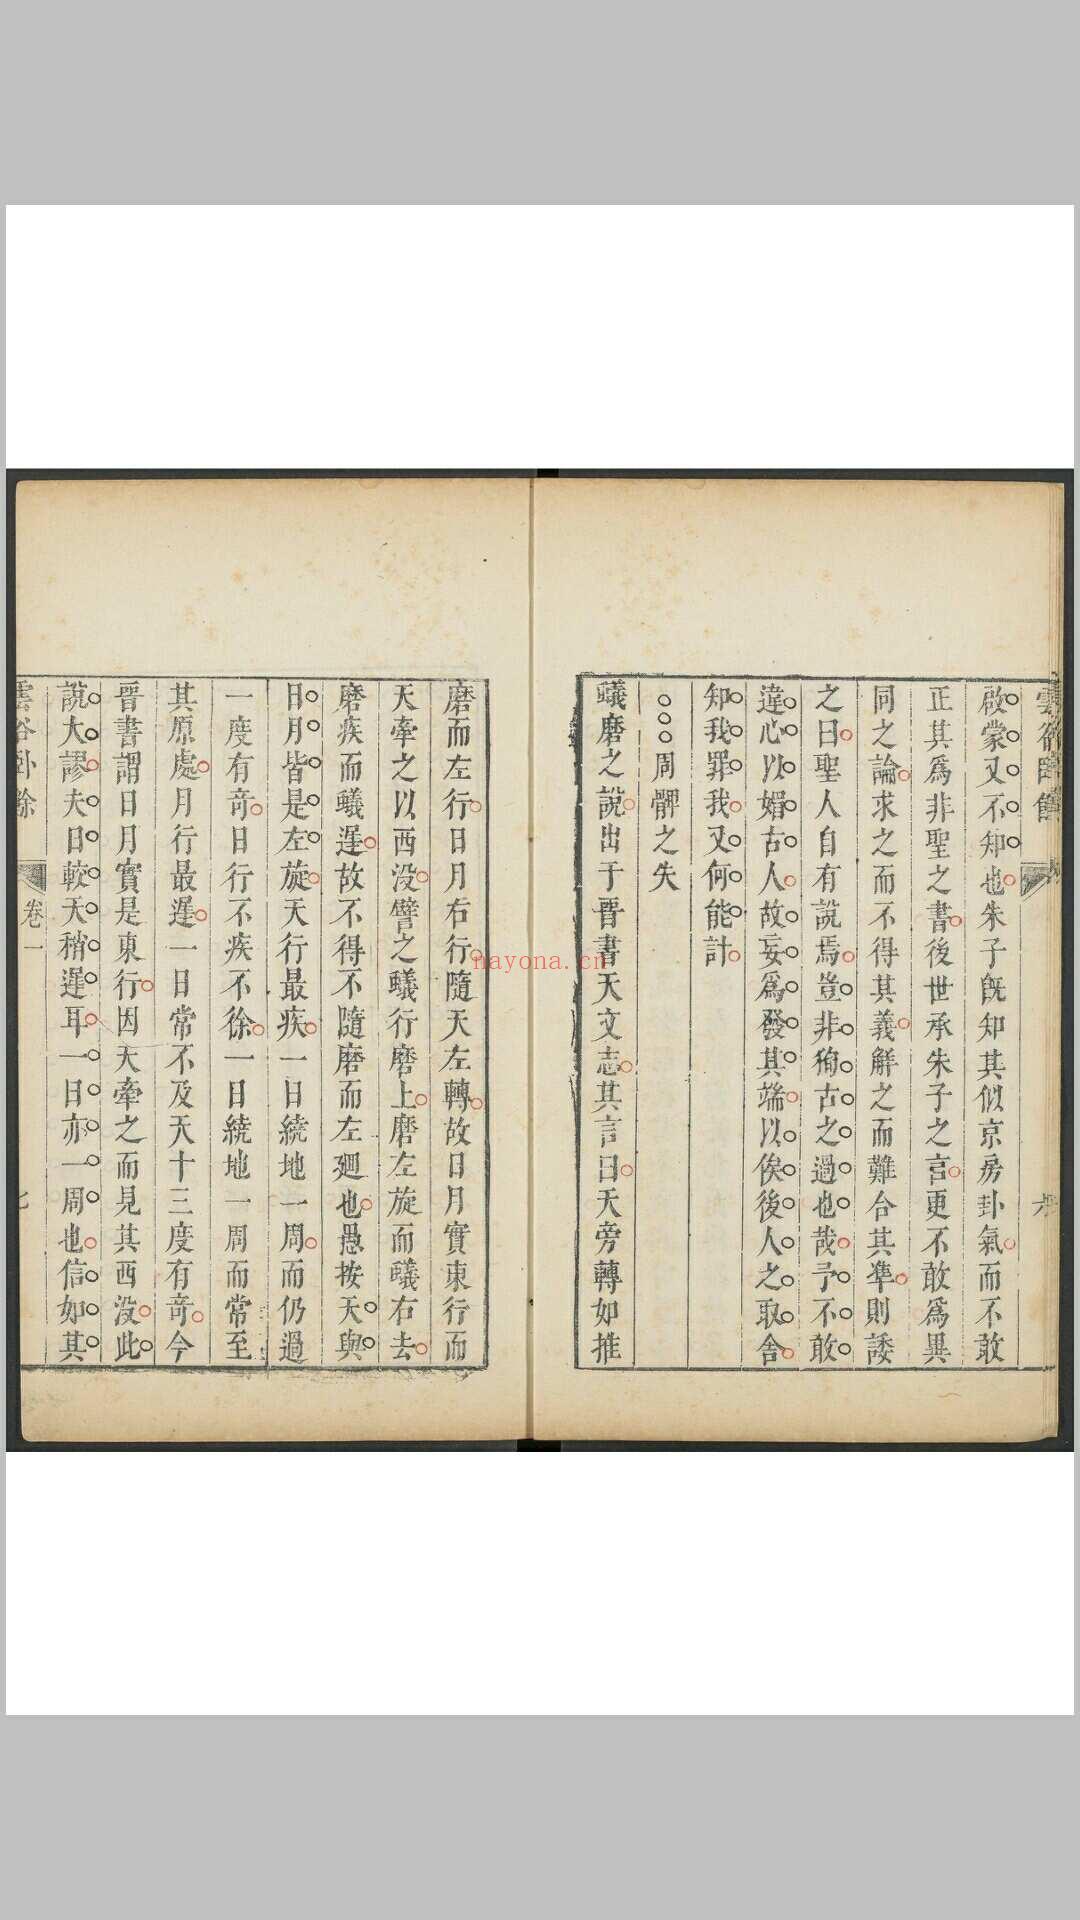 雲谷臥餘
六
啟蒙又不知也朱子既知其似京房卦氣而不敢
正其爲非聖之書後世承朱子之言更不敢爲異
同之論求之而不得其義解之而難合其準則諉
之曰聖人自有說焉豈非徇古之過也哉予不敢
違心以媚古人故妄爲發其端以俟後人之取舍
知我罪我又何能計
○○○周髀之失
蟻磨之說出于晉書天文志其言曰天旁轉如推
磨而左行日月右行隨天左轉故日月實東行而
天牽之以西没譬之蟻行磨上磨左旋而蟻右去
磨疾而蟻遲故不得不隨磨而左廻也愚按天與
日月皆是左旋天行最疾一日繞地一周而仍過
一度有奇日行不疾不徐一日繞地一周而常至
其原處月行最遲一日常不及天十三度有奇今
晉書謂日月實是東行因天牽之而見其西没此
說大謬夫日較天稍遲耳一日亦一周也信如其
雲谷臥餘
卷一
七
nayona.cn